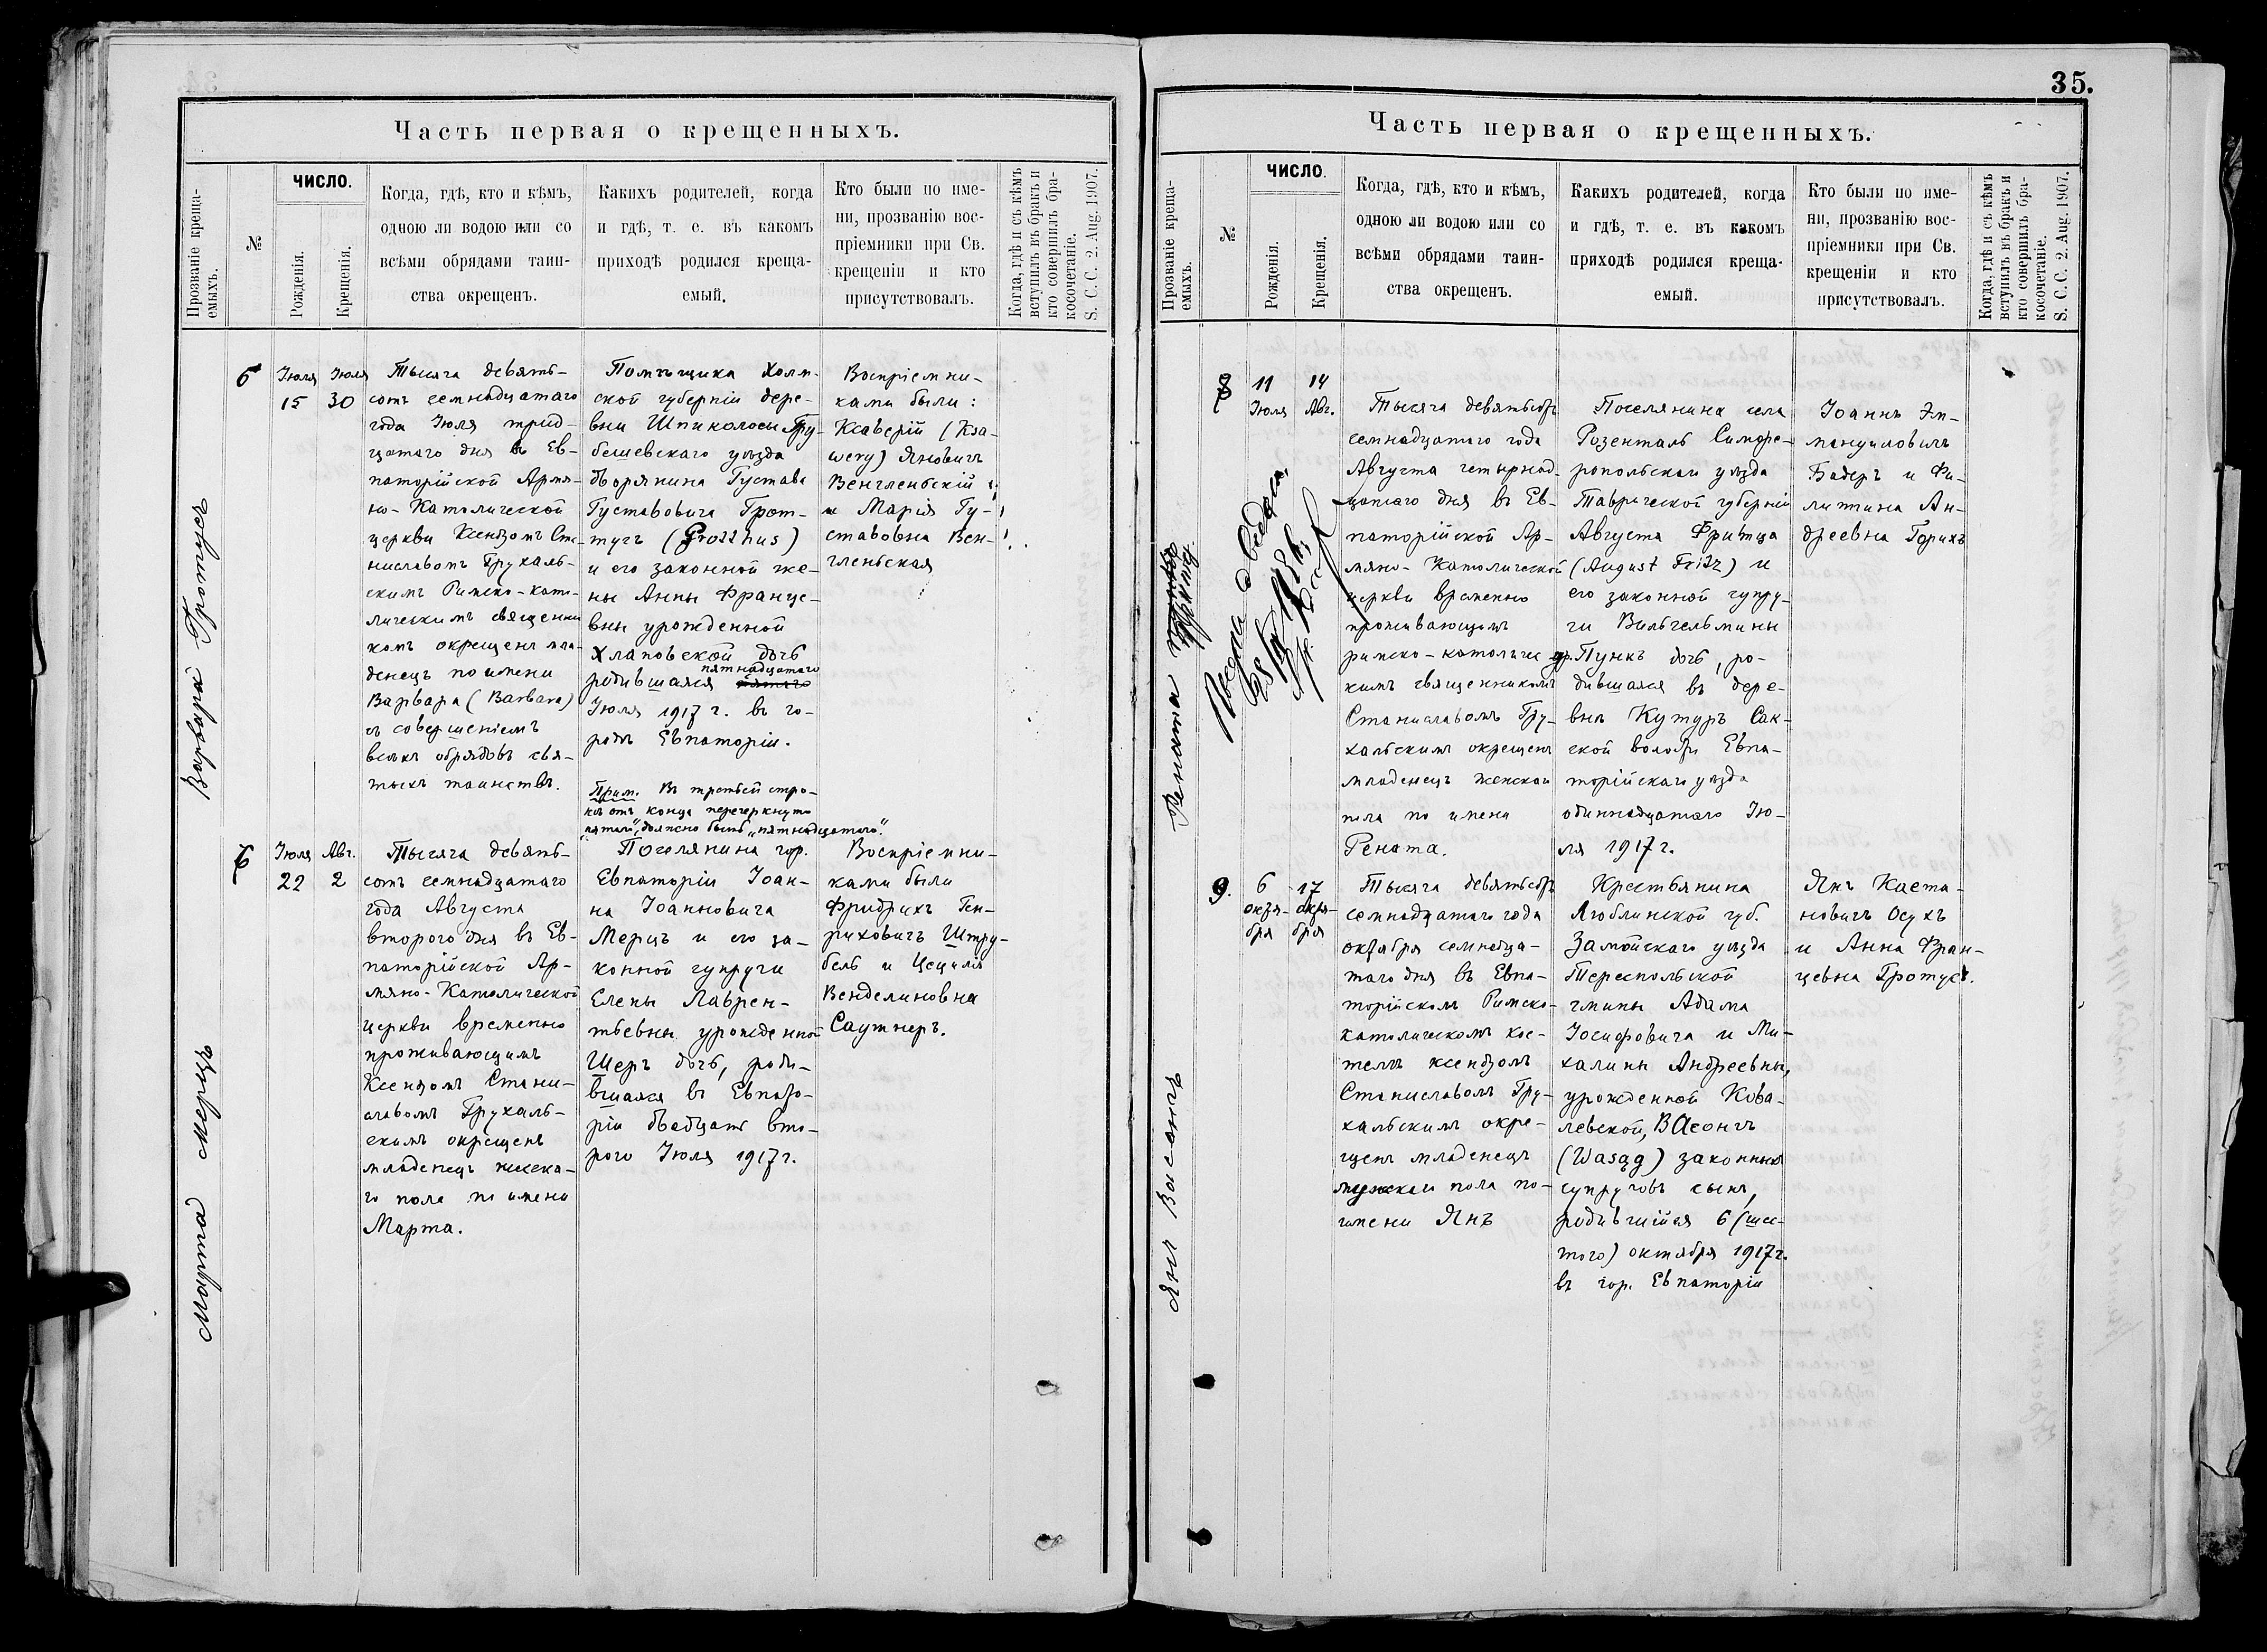 Часть первая о крещенныхъ.
Прозваніе креща-
емыхъ.
№
ЧИСЛО.
Рожденія.
Крещенія.
Когда, гдѣ, кто и кѣмъ,
одною ли водою или со
всѣми обрядами таин-
ства окрещенъ.
Какихъ родителей, когда
и гдѣ, т. е. въ какомъ
приходѣ родился креща-
емый.
Кто были по име-
ни, прозванію вос-
пріемники при Св.
крещеніи и кто
присутствовалъ.
Когда, гдѣ и съ кѣмъ
вступилъ въ бракъ и
кто совершилъ бра-
косочетаніе.
S. C. C. 2. Aug. 1907.
Варвара Гротусъ
6
Іюля
15
Іюля
30
Тысяча девять-
сотъ семнадцатаго
года Іюля трид-
цатаго дня въ Ев-
паторійской Армя-
но-Католической
церкви Ксендзомъ Ста-
ниславомъ Грухаль-
скимъ Римско-като-
лическимъ священни
комъ окрещенъ мла-
денецъ по имени
Варвара (Barbara)
съ совершеніемъ
всѣхъ обрядовъ свя-
тыхъ таинствъ.
Помѣщика Холм-
ской губерніи дере-
вни Шпиколосы Гру-
бешевскаго уѣзда
дворянина Густава
Густавовича Грот-
тусъ (Grotthus)
и его законной же-
ны Анны Францe-
вны урожденной
Хлаповской дочь
пятнадцатаго
родившаяся пятаго
Іюля 1917 г. въ го-
родѣ Евпаторіи.
Прим. Въ третьей стро-
кѣ отъ конца перечеркнуто
„пятаго", должно быть „пятнадцатаго".
Воспріемни-
ками были:
Ксаверій (Ksa-
wery) Яновичъ
Венгленьскій
и Марія Гу-
ставовна Вен-
гленьская
Марта Мерцъ
7
Іюля
22
Авг.
2
Тысяча девять-
сотъ семнадцатаго
года Августа
второго дня въ Ев-
паторійской Ар-
мяно-Католической
церкви временно
проживающимъ
Ксендзомъ Стани-
славомъ Грухаль-
скимъ окрещенъ
младенецъ женска-
го пола по имени
Марта.
Поселянина гор.
Евпаторіи Іоан-
на Іоанновича
Мерцъ и его за-
конной супруги
Елены Лаврен-
тьевны урожденной
Шеръ дочь, роди-
вшаяся въ Евпато-
ріи двадцать вто-
рого Іюля 1917 г.
Воспріемни-
ками были
Фридрихъ Ген-
риховичъ Штру-
бель и Цецилія
Венделиновна
Саутнеръ.
35.
Часть первая о крещенныхъ.
Прозваніе креща-
емыхъ.
№
ЧИСЛО.
Рожденія.
Крещенія.
Когда, гдѣ, кто и кѣмъ,
одною ли водою или со
всѣми обрядами таин-
ства окрещенъ.
Какихъ родителей, когда
и гдѣ, т. е. въ какомъ
приходѣ родился креща-
емый.
Кто были по име-
ни, прозванію вос-
пріемники при Св.
крещеніи и кто
присутствовалъ.
Когда, гдѣ и съ кѣмъ
вступилъ въ бракъ и
кто совершилъ бра-
косочетаніе.
S. C. C. 2. Aug. 1907.
Рената Фритцъ
8
11
Іюля
14
Авг.
Тысяча девятьсотъ
семнадцатаго года
Августа четырнад-
цатаго дня въ Ев-
паторійской Ар-
мяно-Католической
церкви временно
проживающимъ
римско-католичес
кимъ священникомъ
Станиславомъ Гру-
хальскимъ окрещенъ
младенецъ женскаго
пола по имени
Рената.
Поселянина села
Розенталь Симфе-
ропольскаго уѣзда
Таврической губерніи
Августа Фритца
(August Fritz) и
его законной супру-
ги Вильгельмины
ур. Пункъ дочь, ро-
дившаяся въ дере-
внѣ Кутуръ Сак-
ской волости Евпа-
торійскаго уѣзда
одиннадцатаго Ію-
ля 1917 г.
Іоаннъ Эм-
мануиловичъ
Бадеръ и Фи-
липпина Ан-
дреевна Горихъ
Янъ Васонгъ
9.
6
октя-
бря
17
октя-
бря
Тысяча девятьсотъ
семнадцатаго года
октября семнадца-
таго дня въ Евпа-
торійскомъ Римско-
католическомъ кос-
телѣ ксендзомъ
Станиславомъ Гру-
хальскимъ окре-
щенъ младенецъ
мужскаго пола по
имени Янъ
Крестьянина
Люблинской губ.
Замойскаго уѣзда
Тереспольской
гмины Адама
Іосифовича и Ми-
халины Андреевны,
урожденной Кова-
левской, Васонгъ
(Wasąg) законныхъ
супруговъ сынъ,
родившійся 6 (шес-
того) октября 1917 г.
въ гор. Евпаторіи
Янъ Каета-
новичъ Осухъ
и Анна Фран-
цевна Гротусъ.